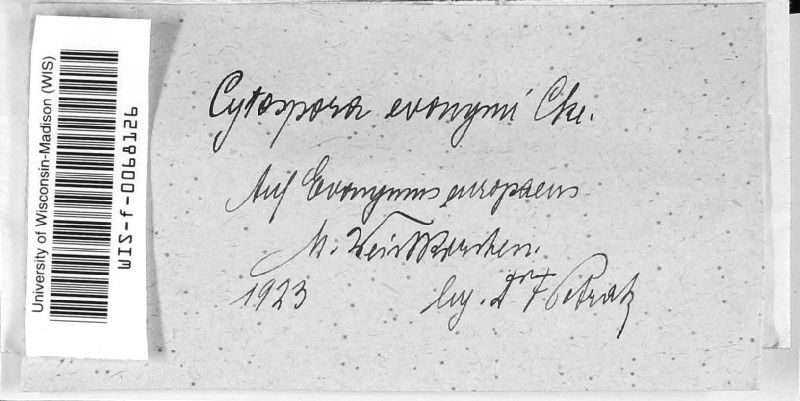 University of Wisconsin-Madison (WIS)
WIS-f-0068126
Cytospora evonymi Cke.
Auf Evonymus europaeus
M. Weisskirchen.
1923 leg. Dr F. Petrak